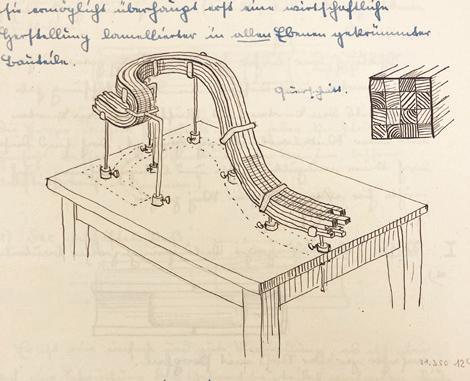 sie ermöglicht überhaupt erst eine wirtschaftliche
Herstellung lamellierter in allen Ebenen gekrümmter
Bauteile.
Querschnitt.
I